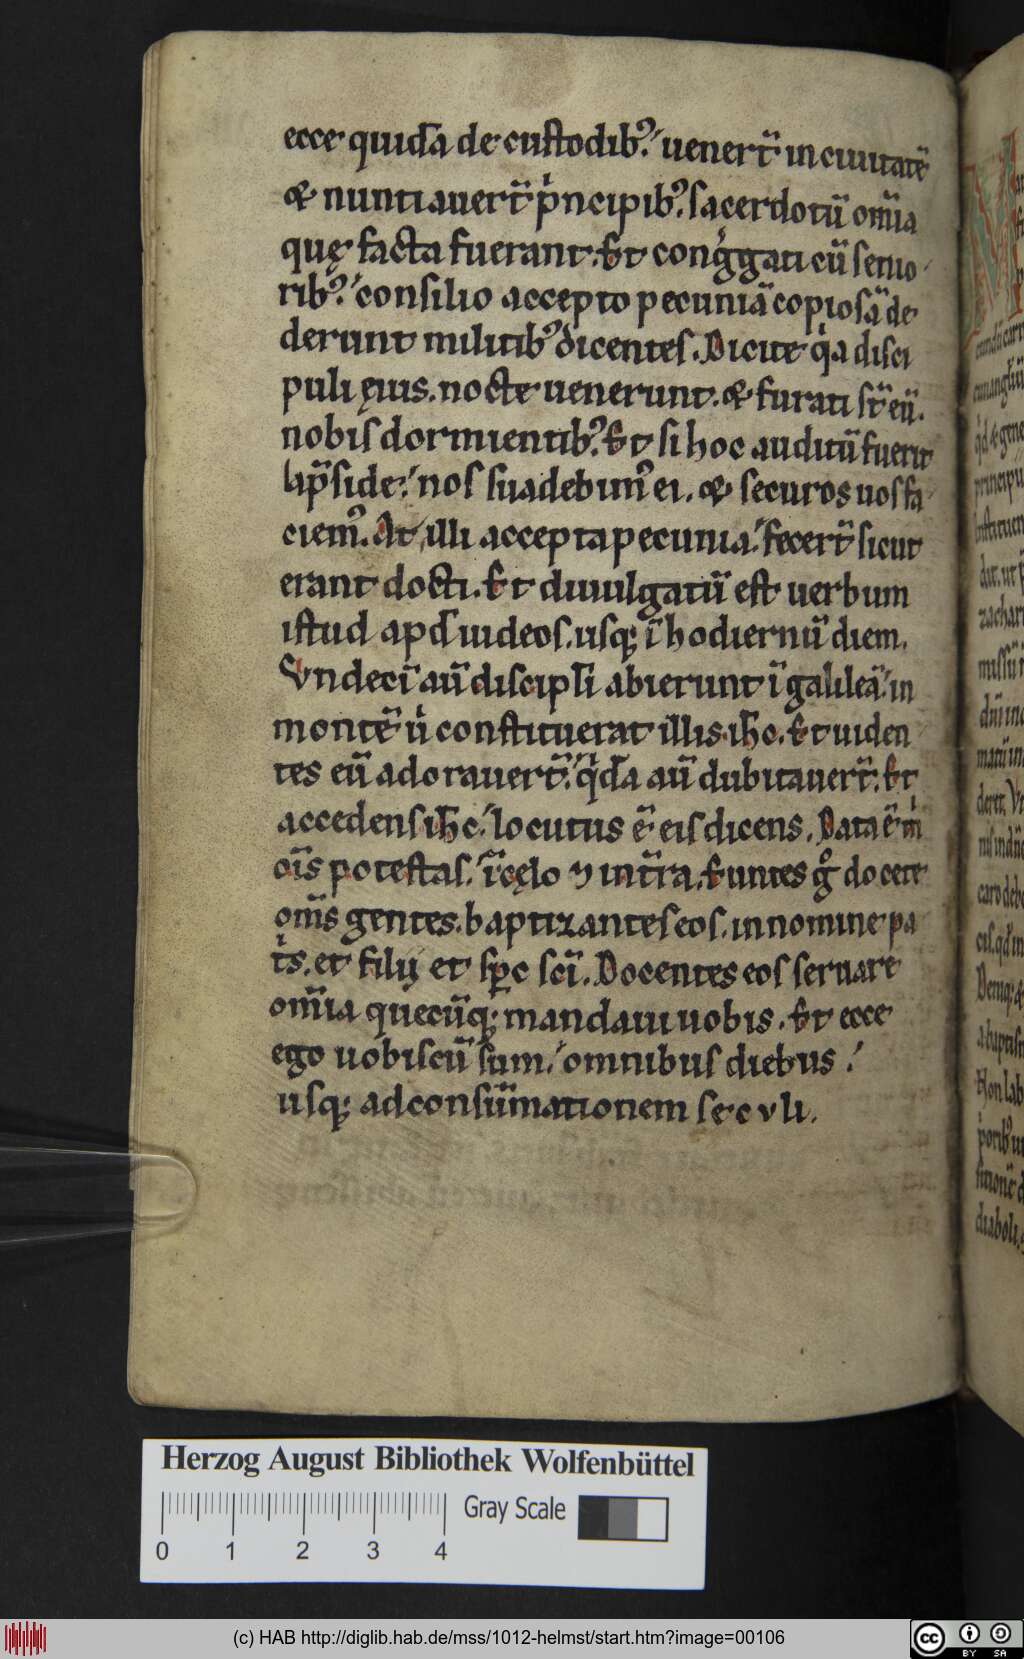 ecce quidā de custodib᷒ uenert̄ in ciuitatē
& nuntiauert̄ pͥncipib᷒ sacerdotū om̄ia
quę facta fuerant. Et congͤgati cū senio
rib᷒ consilio accepto pecuniā copiosā de
derunt militib᷒ dicentes. Dicite qͥa disci
puli ęius. nocte uenerunt. & furati st̄ eū.
nobis dormientib᷒. Et si hoc auditū fuerit
ap̄side. nos suadebim᷒ ei. & securos uos fa
ciem᷒. At illi accepta pecunia. fecert̄ sicut
erant docti. Et diuulgatū est uerbum
istud apđ iudeos. usq; ī hodiernū diem.
Vndecī aū discipl̄i abierunt ī galileā. in
montē uͥ constituerat illis. ih̄c. Et uiden
tes eū adorauert̄. qͥdā aū dubitauert̄. Et
accedens ih̄c. locutus ē eis dicens. Data ē mͥ
oīs potestas. ī cęlo ⁊ in tr̄a. Euntes gͦ docete
om̄s gentes. baptizantes eos. in nomine pa
tͥs. et filij et sp̄c sc̄i. Docentes eos seruare
om̄ia quecūq; mandaui uobis. Et ecce
ego uobiscū sum. omnibus diebus
usq; ad consūmationem seculi.
Herzog August Bibliothek Wolfenbüttel
Gray Scale
0 1 2 3 4
(c) HAB http://diglib.hab.de/mss/1012-helmst/start.htm?image=00106
cc BY SA